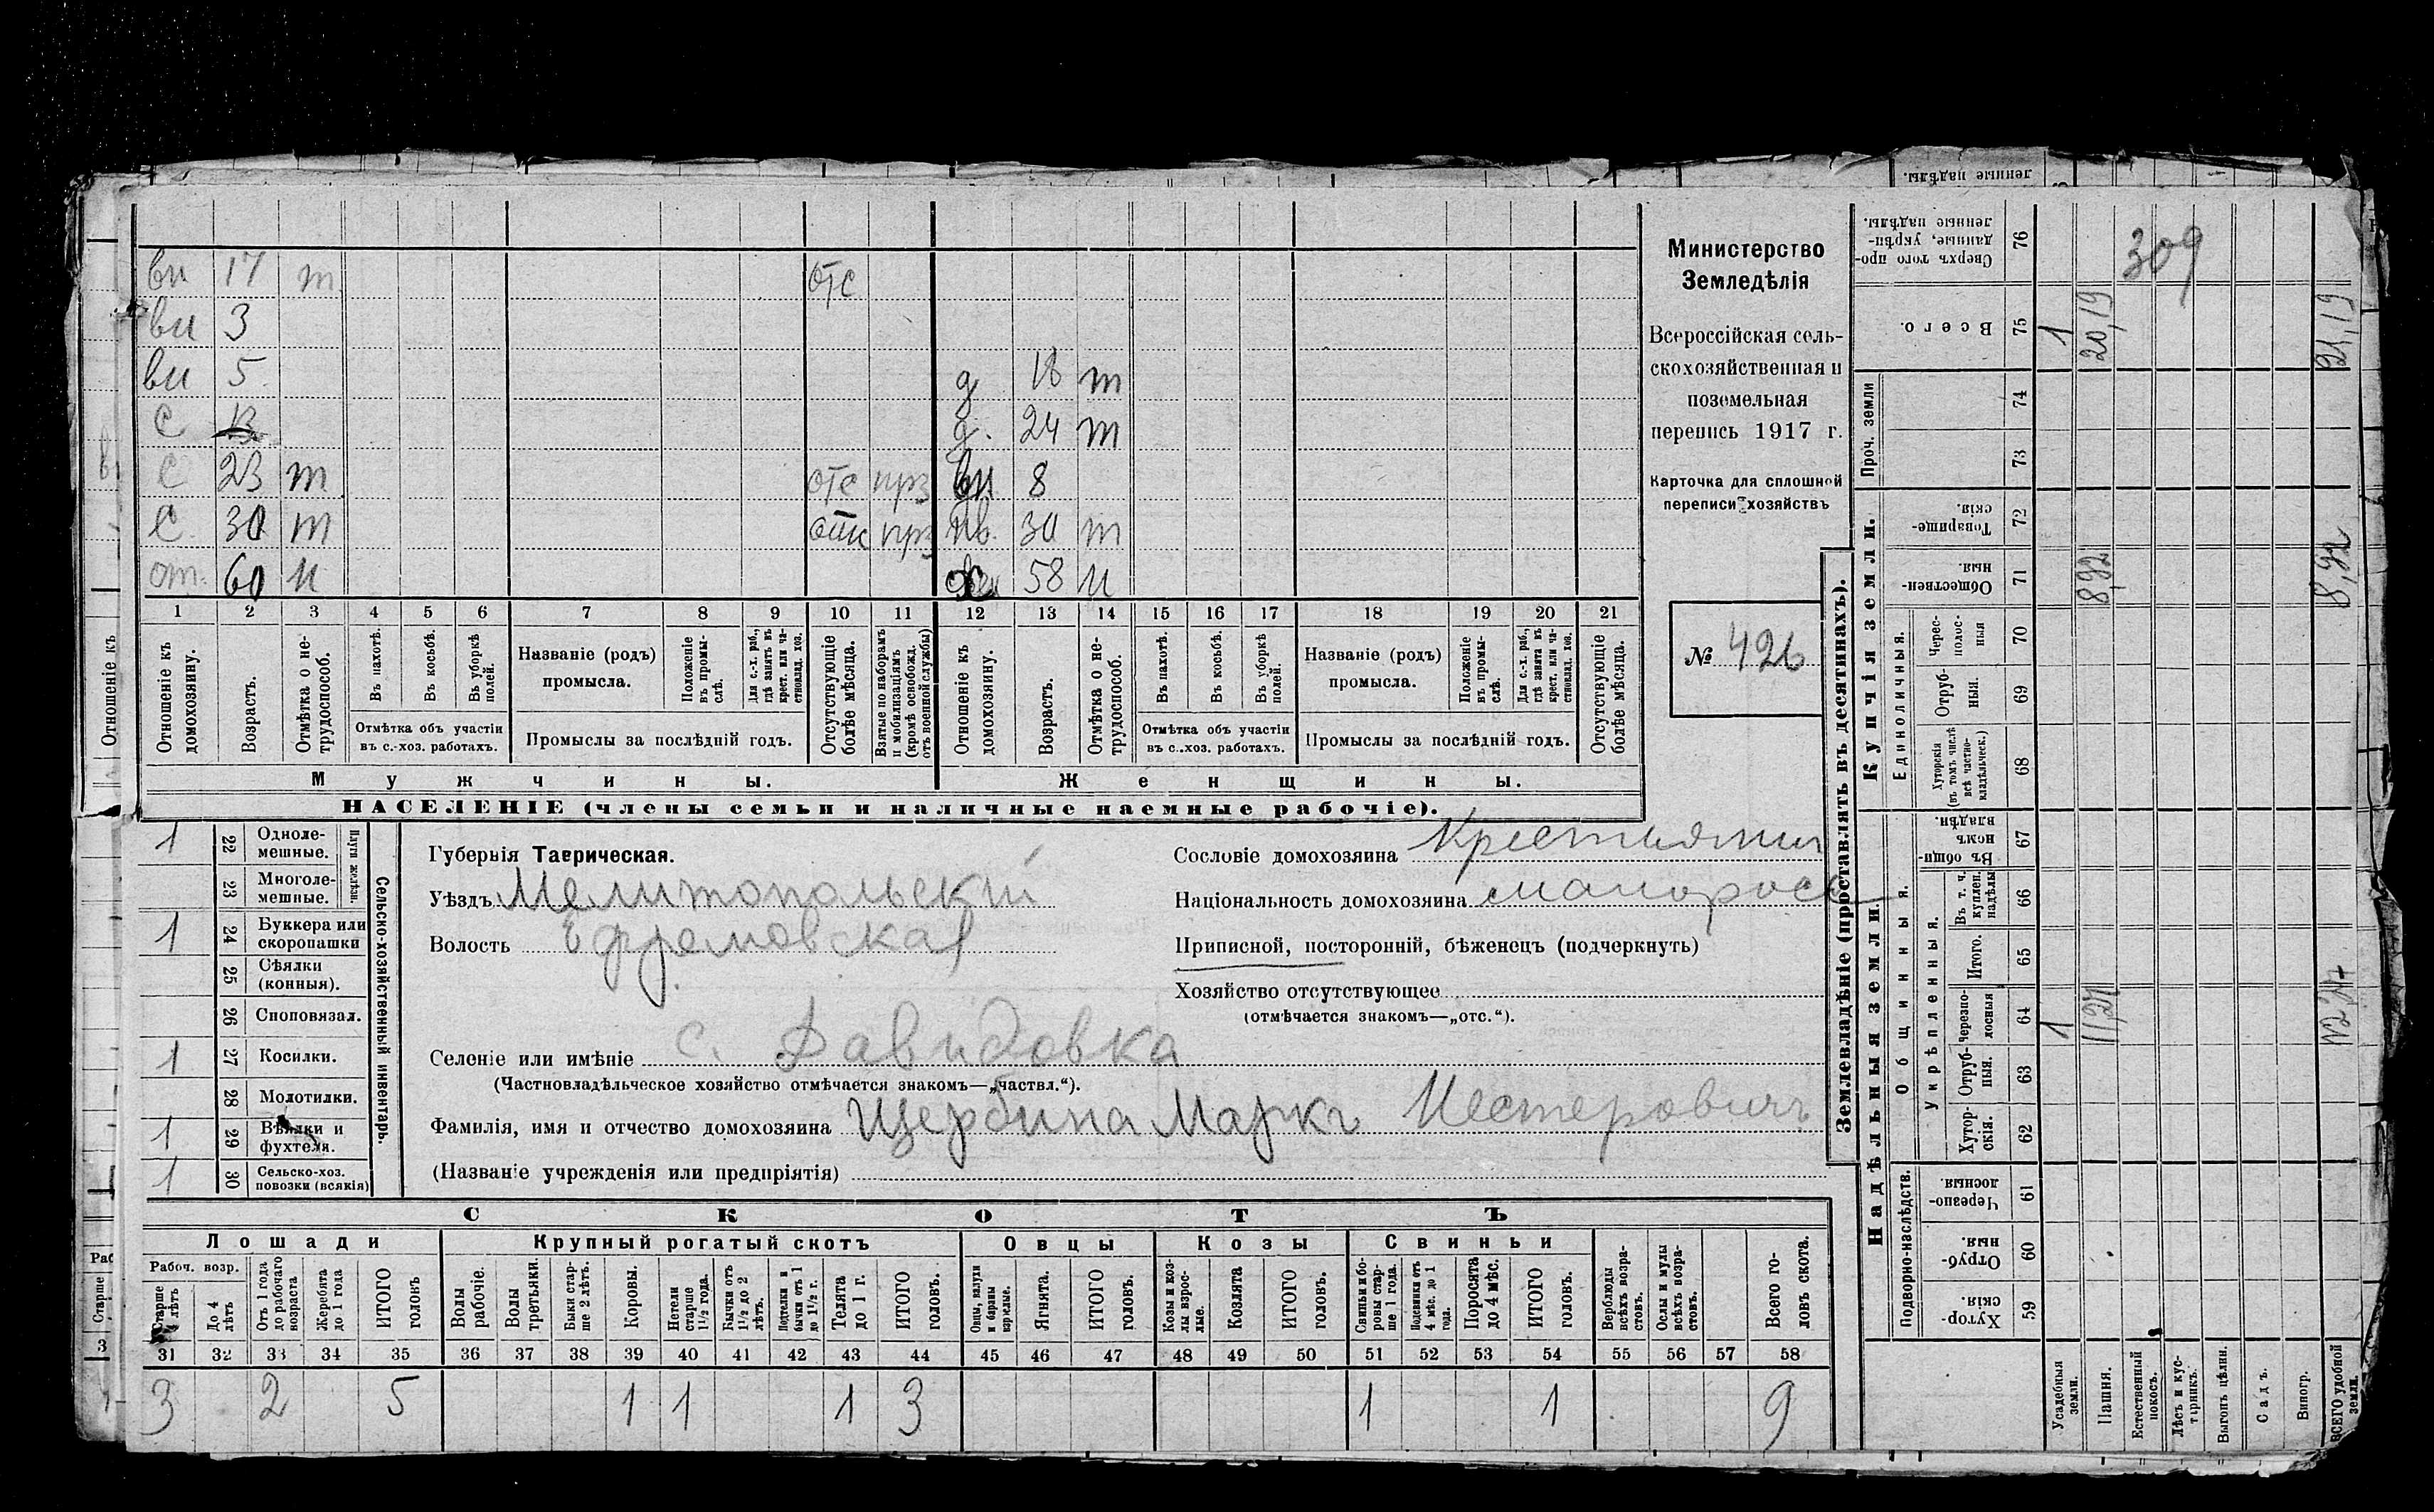 вн 17 т отс
вн 3
вн 5 д 18 т
с 13 д. 24 т
с 23 т отс прз вн 8
с 30 т отс прз нв. 30 т
от. 60 н жен 58 н
1 2 3 4 5 6 7 8 9 10 11 12 13 14 15 16 17 18 19 20 21
Отношеніе къ домохозяину.
Возрастъ.
Отмѣтка о не-трудоспособ.
Въ пахотѣ.
Въ косьбѣ.
Въ уборкѣ полей.
Отмѣтка объ участіи
въ с.-хоз. работахъ.
Названіе (родъ)
промысла.
Положеніе въ промы-слѣ.
Для с.-х. раб., гдѣ занятъ въ крест. или ча-стновлад. хоз.
Промыслы за послѣдній годъ.
Отсутствующіе болѣе мѣсяца.
Взятые по наборамъ и мобилизаціямъ (кромѣ освобожд. отъ военной службы)
Отношеніе къ домохозяину.
Возрастъ.
Отмѣтка о не-трудоспособ.
Въ пахотѣ.
Въ косьбѣ.
Въ уборкѣ полей.
Отмѣтка объ участіи
въ с.-хоз. работахъ.
Названіе (родъ)
промысла.
Положеніе въ промы-слѣ.
Для с.-х. раб., гдѣ занята въ крест. или ча-стновлад. хоз.
Промыслы за послѣдній годъ.
Отсутствующіе болѣе мѣсяца.
Мужчины.
Женщины.
НАСЕЛЕНІЕ (члены семьи и наличные наемные рабочіе).
Министерство
Земледѣлія
Всероссійская сель-
скохозяйственная и
поземельная
перепись 1917 г.
Карточка для сплошной
переписи хозяйствъ
№ 426
1 22 Одноле-мешные.
23 Многоле-мешные.
Плуги желѣзн.
1 24 Буккера или скоропашки
25 Сѣялки (конныя).
26 Сноповязал.
1 27 Косилки.
28 Молотилки.
1 29 Вѣялки и фухтеля.
1 30 Сельско-хоз. повозки (всякія)
Сельско-хозяйственный инвентарь.
Губернія Таврическая.
Уѣздъ Мелитопольскій
Волость Ефремовская
Селеніе или имѣніе с. Давидовка
(Частновладѣльческое хозяйство отмѣчается знакомъ—„частвл.“).
Фамилія, имя и отчество домохозяина Щербина Маркъ Нестеровичъ
(Названіе учрежденія или предпріятія)
Сословіе домохозяина Крестьянин
Національность домохозяина малоросс
Приписной, посторонній, бѣженецъ (подчеркнуть)
Хозяйство отсутствующее
(отмѣчается знакомъ—„отс.“).
СКОТЪ
Лошади Крупный рогатый скотъ Овцы Козы Свиньи
Рабоч. возр.
Старше 4 лѣтъ
До 4 лѣтъ
Отъ 1 года до рабочаго возраста
Жеребята до 1 года
ИТОГО головъ
Волы рабочіе.
Волы третьяки.
Быки стар-ше 2 лѣтъ.
Коровы.
Нетели старше 1½ года.
Бычки отъ 1½ до 2 лѣтъ.
Подтелки и бычки отъ 1 до 1½ г.
Телята до 1 г.
ИТОГО головъ.
Овцы, валухи и бараны взрослые.
Ягнята.
ИТОГО головъ.
Козы и коз-лы взрос-лые.
Козлята
ИТОГО головъ.
Свиньи и бо-ровы стар-ше 1 года.
Подсвинки отъ 4 мѣс. до 1 года.
Поросята до 4 мѣс.
ИТОГО головъ.
Верблюды всѣхъ возра-стовъ.
Ослы и мулы всѣхъ возра-стовъ.
Всего го-ловъ скота.
31 32 33 34 35 36 37 38 39 40 41 42 43 44 45 46 47 48 49 50 51 52 53 54 55 56 57 58
3 2 5 1 1 1 3 1 1 9
Землевладѣніе (проставлять въ десятинахъ).
Надѣльныя земли.
Купчія земли.
Проч. земли
Подворно-наслѣдств.
Общинныя.
Укрѣпленныя.
Единоличныя.
Хутор-скія. 59
Отруб-ныя. 60
Черезпо-лосныя. 61
Хутор-скія. 62
Отруб-ныя. 63
Черезпо-лосныя 64
Итого. 65
Въ т. ч. куплен. надѣлы 66
Въ общи-номъ владѣн. 67
Хуторскія (въ томъ числѣ всѣ частно-владѣльческ.) 68
Отруб-ныя. 69
Черес-полос-ныя 70
Обществен-ныя. 71
Товарище-скія. 72
73
74
Всего. 75
Сверхъ того про-данные, укрѣп-ленные надѣлы. 76
Усадебныя земли. 1 1
Пашня. 11,27 8,92 20,19
Естественный покосъ.
Лѣсъ и кус-тарникъ.
Выгонъ цѣлин.
Садъ.
Виногр.
ВСЕГО удобной земли. 8,92 21,19
309